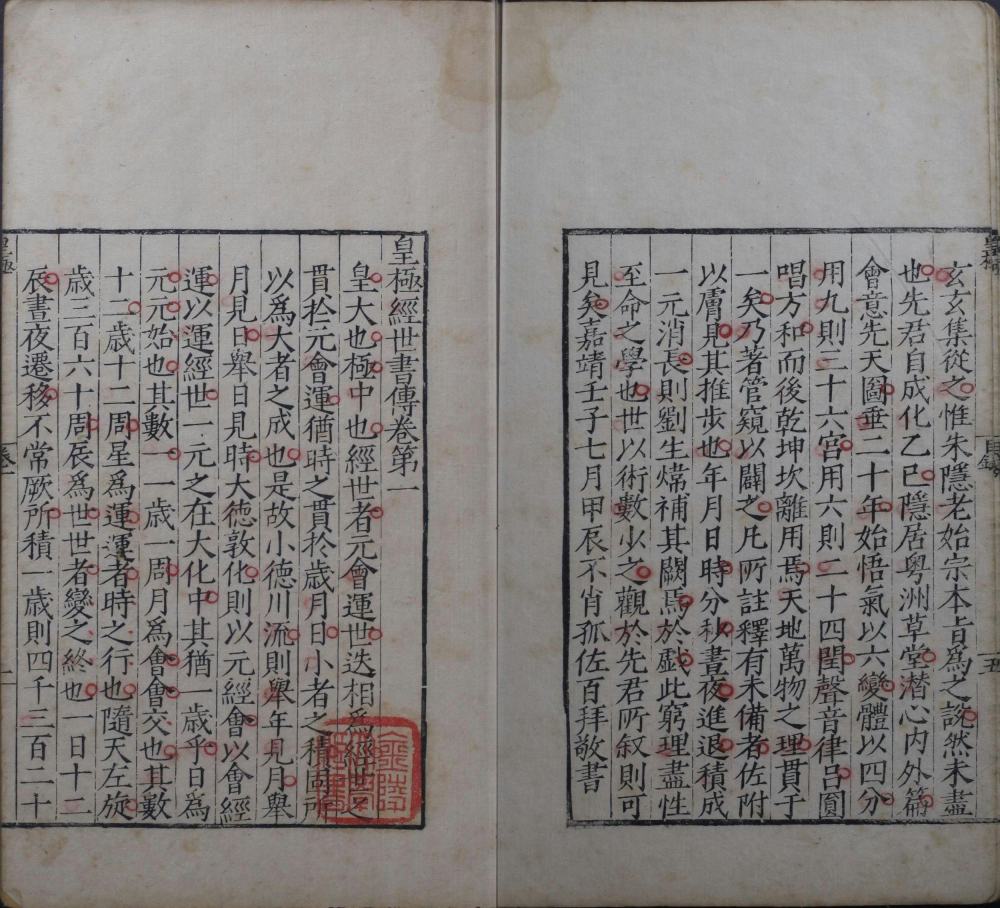 玄玄集從之惟朱隱老始宗本旨爲之說然未盡
也先君自成化乙巳隱居粤洲草堂潜心内外篇
會意先天圖垂二十年始悟氣以六變體以四分
用九則三十六宮用六則二十四閏聲音律吕圓
唱方和而後乾坤坎離用焉天地萬物之理貫于
一矣乃著管窺以闢之凡所註釋有未備者佐附
以膚見其推步也年月日時分秋晝夜進退積成
一元消長則劉生焴補其闕焉於戯此窮理盡性
至命之學也世以術數少之觀於先君所叙則可
見矣嘉靖壬子七月甲辰不肖孤佐百拜敬書
目錄
五
皇極經世書傳卷第一
皇大也極中也經世者元會運世迭相爲經世之
貫扵元會運猶時之貫扵歲月日小者之積固所
以爲大者之成也是故小德川流則舉年見月舉
月見日舉日見時大德敦化則以元經會以會經
運以運經世一元之在大化中其猶一歲乎日爲
元元始也其數一一歲一周月爲會會交也其數
十二歲十二周星爲運運者時之行也隨天左旋
歲三百六十周辰爲世世者變之終也一日十二
辰晝夜遷移不常厥所積一歲則四千三百二十
皇極
卷一
一